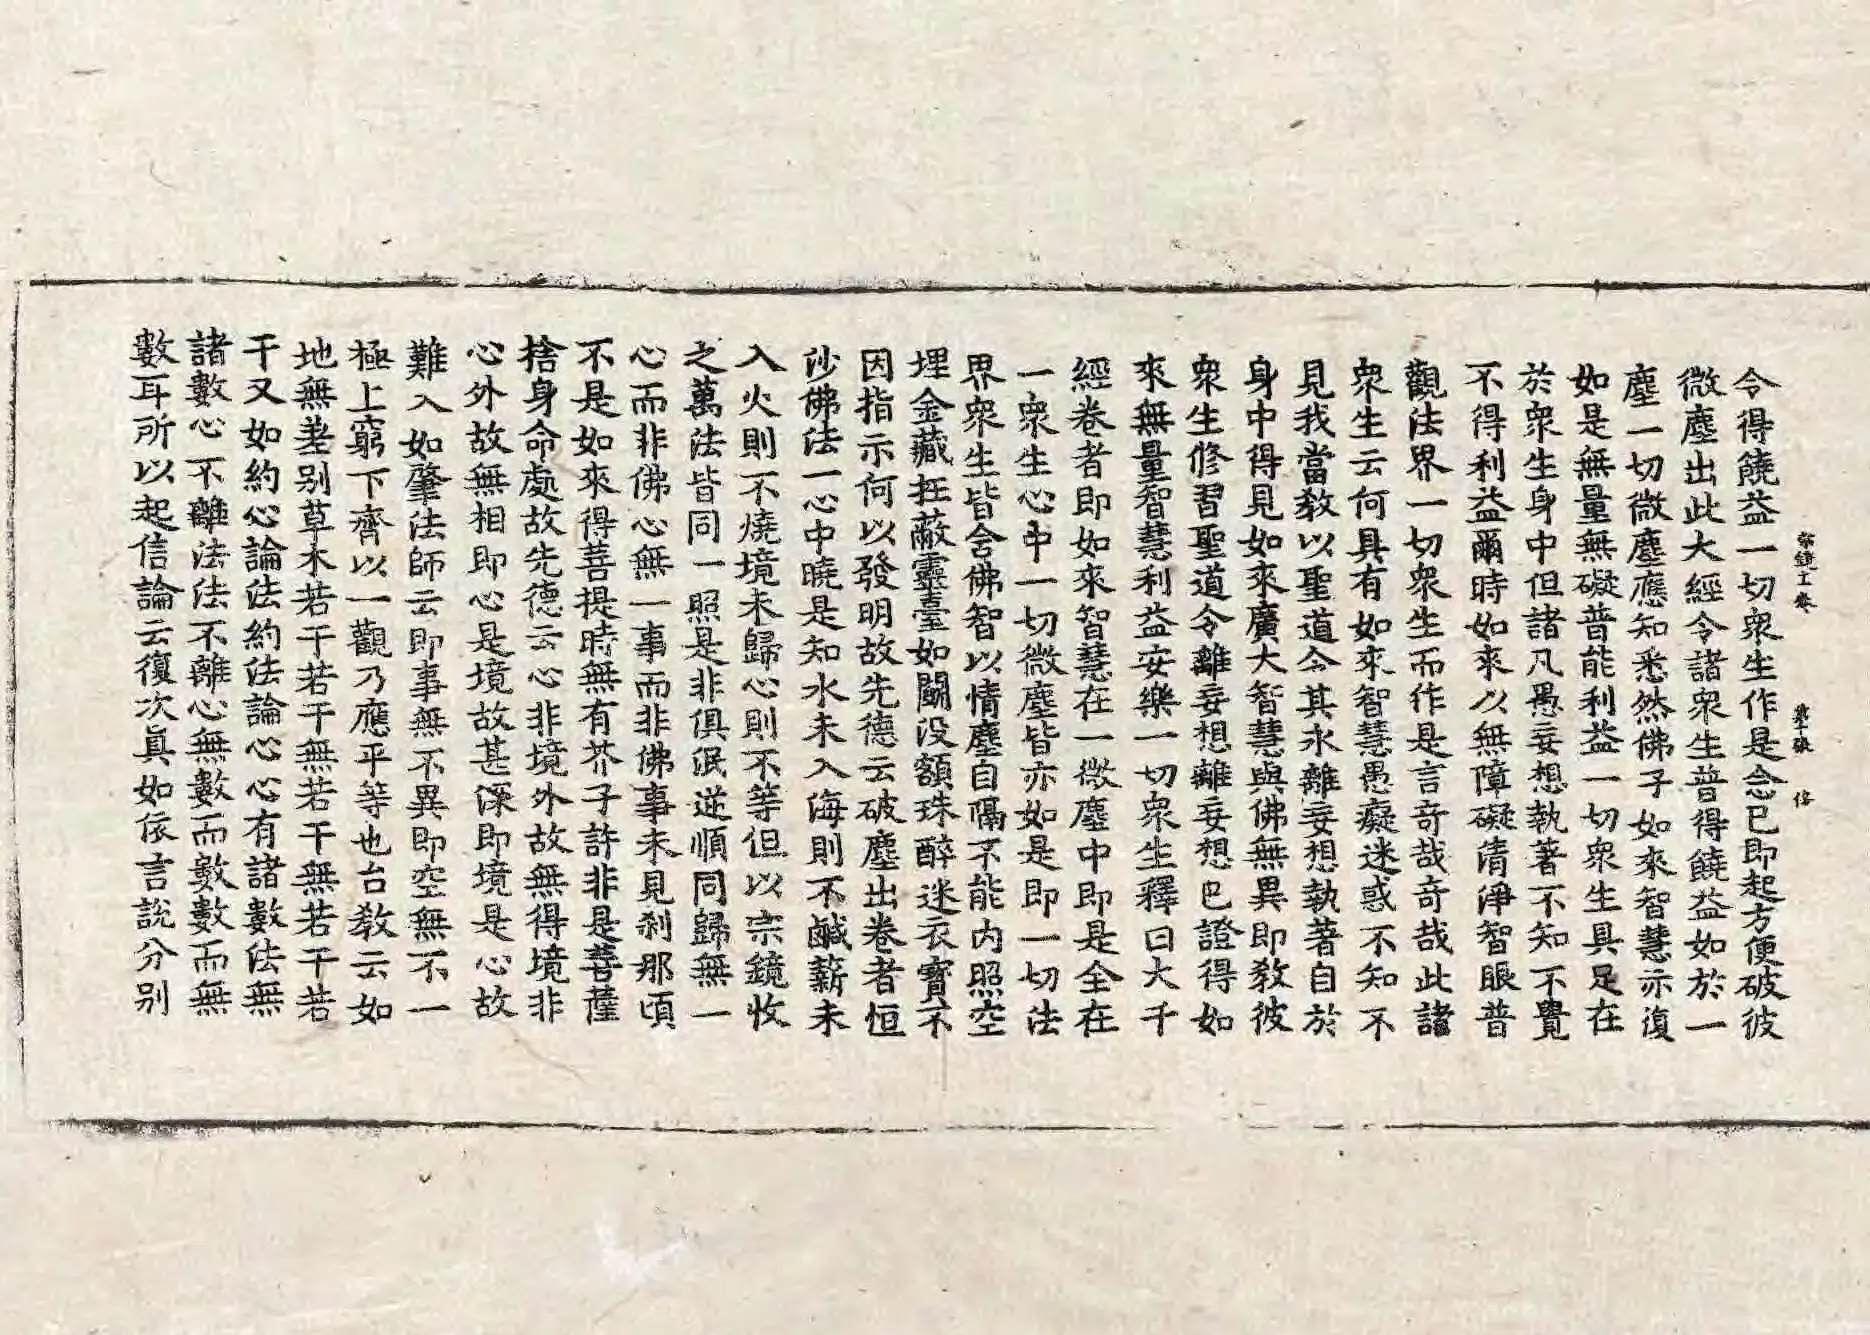 令得饒益一切衆生作是念已即起方便破彼
微塵出此大經令諸衆生普得饒益如於一
塵一切微塵應知悉然佛子如來智慧亦復
如是無量無礙普能利益一切衆生具足在
於衆生身中但諸凡愚妄想執著不知不覺
不得利益爾時如來以無障礙清淨智眼普
觀法界一切衆生而作是言奇哉奇哉此諸
衆生云何具有如來智慧愚癡迷惑不知不
見我當敎以聖道令其永離妄想執著自於
身中得見如來廣大智慧與佛無異即敎彼
衆生修習聖道令離妄想離妄想已證得如
來無量智慧利益安樂一切衆生釋曰大千
經卷者即如來智慧在一微塵中即是全在
一衆生心中一切微塵皆亦如是即一切法
界衆生皆含佛智以情塵自隔不能內照空
埋金藏抂蔽靈臺如鬪没額珠醉迷衣寶不
因指示何以發明故先德云破塵出卷者恒
沙佛法一心中曉是知水未入海則不鹹薪未
入火則不燒境未歸心則不等但以宗鏡收
之萬法皆同一照是非俱泯逆順同歸無一
心而非佛心無一事而非佛事未見刹那頃
不是如來得菩提時無有芥子許非是菩薩
捨身命處故先德云心非境外故無得境非
心外故無相即心是境故甚深即境是心故
難入如肇法師云即事無不異即空無不一
極上窮下齊以一觀乃應平等也台敎云如
地無差别草木若干若干無若干無若干若
干又如約心論法約法論心心有諸數法無
諸數心不離法法不離心無數而數數而無
數耳所以起信論云復次眞如依言說分别